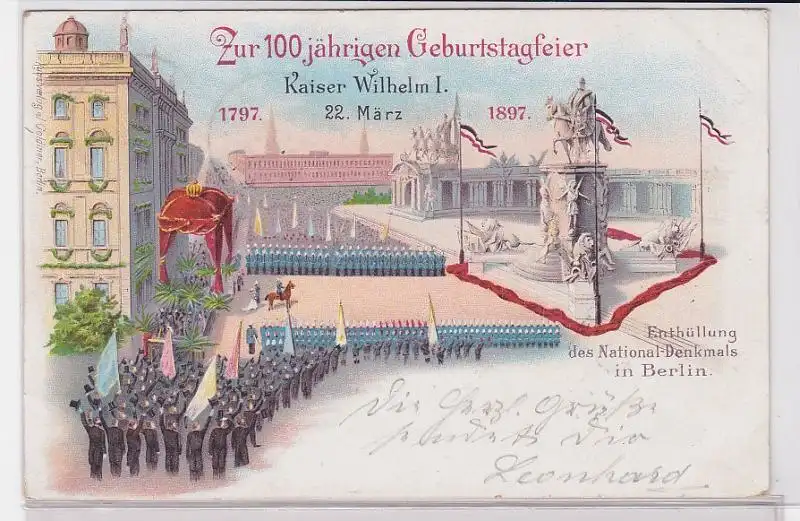 Zur 100 jährigen Geburtstagfeier
Kaiser Wilhelm I.
1797. 22. März 1897.
Enthüllung
des National-Denkmals
in Berlin.
Die herzl. Grüße
sendet Dir
Leonhard